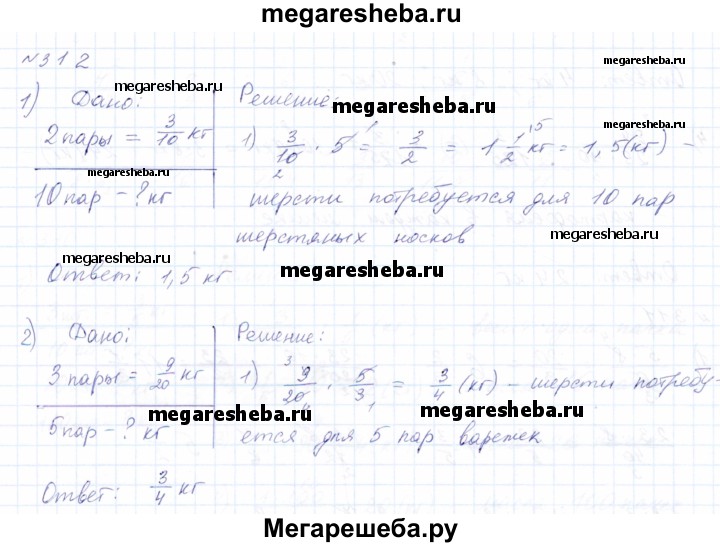 megaresheba.ru
№312
megaresheba.ru
1) Дано: Решение:
megaresheba.ru
2 пары = 3/10 кг 1) 3/10 · 5 = 3/2 = 1 1/2 кг = 1,5(кг) –
2
megaresheba.ru
megaresheba.ru
10 пар – ? кг шерсти потребуется для 10 пар
шерстяных носков
megaresheba.ru
megaresheba.ru
Ответ: 1,5 кг
megaresheba.ru
2) Дано: Решение:
megaresheba.ru
3 пары = 9/20 кг 1) 9/20 · 5/3 = 3/4 (кг) – шерсти потребу-
megaresheba.ru
megaresheba.ru
5 пар – ? кг ется для 5 пар варежек
Ответ: 3/4 кг
megaresheba.ru
megaresheba.ru
Мегарешеба.ру